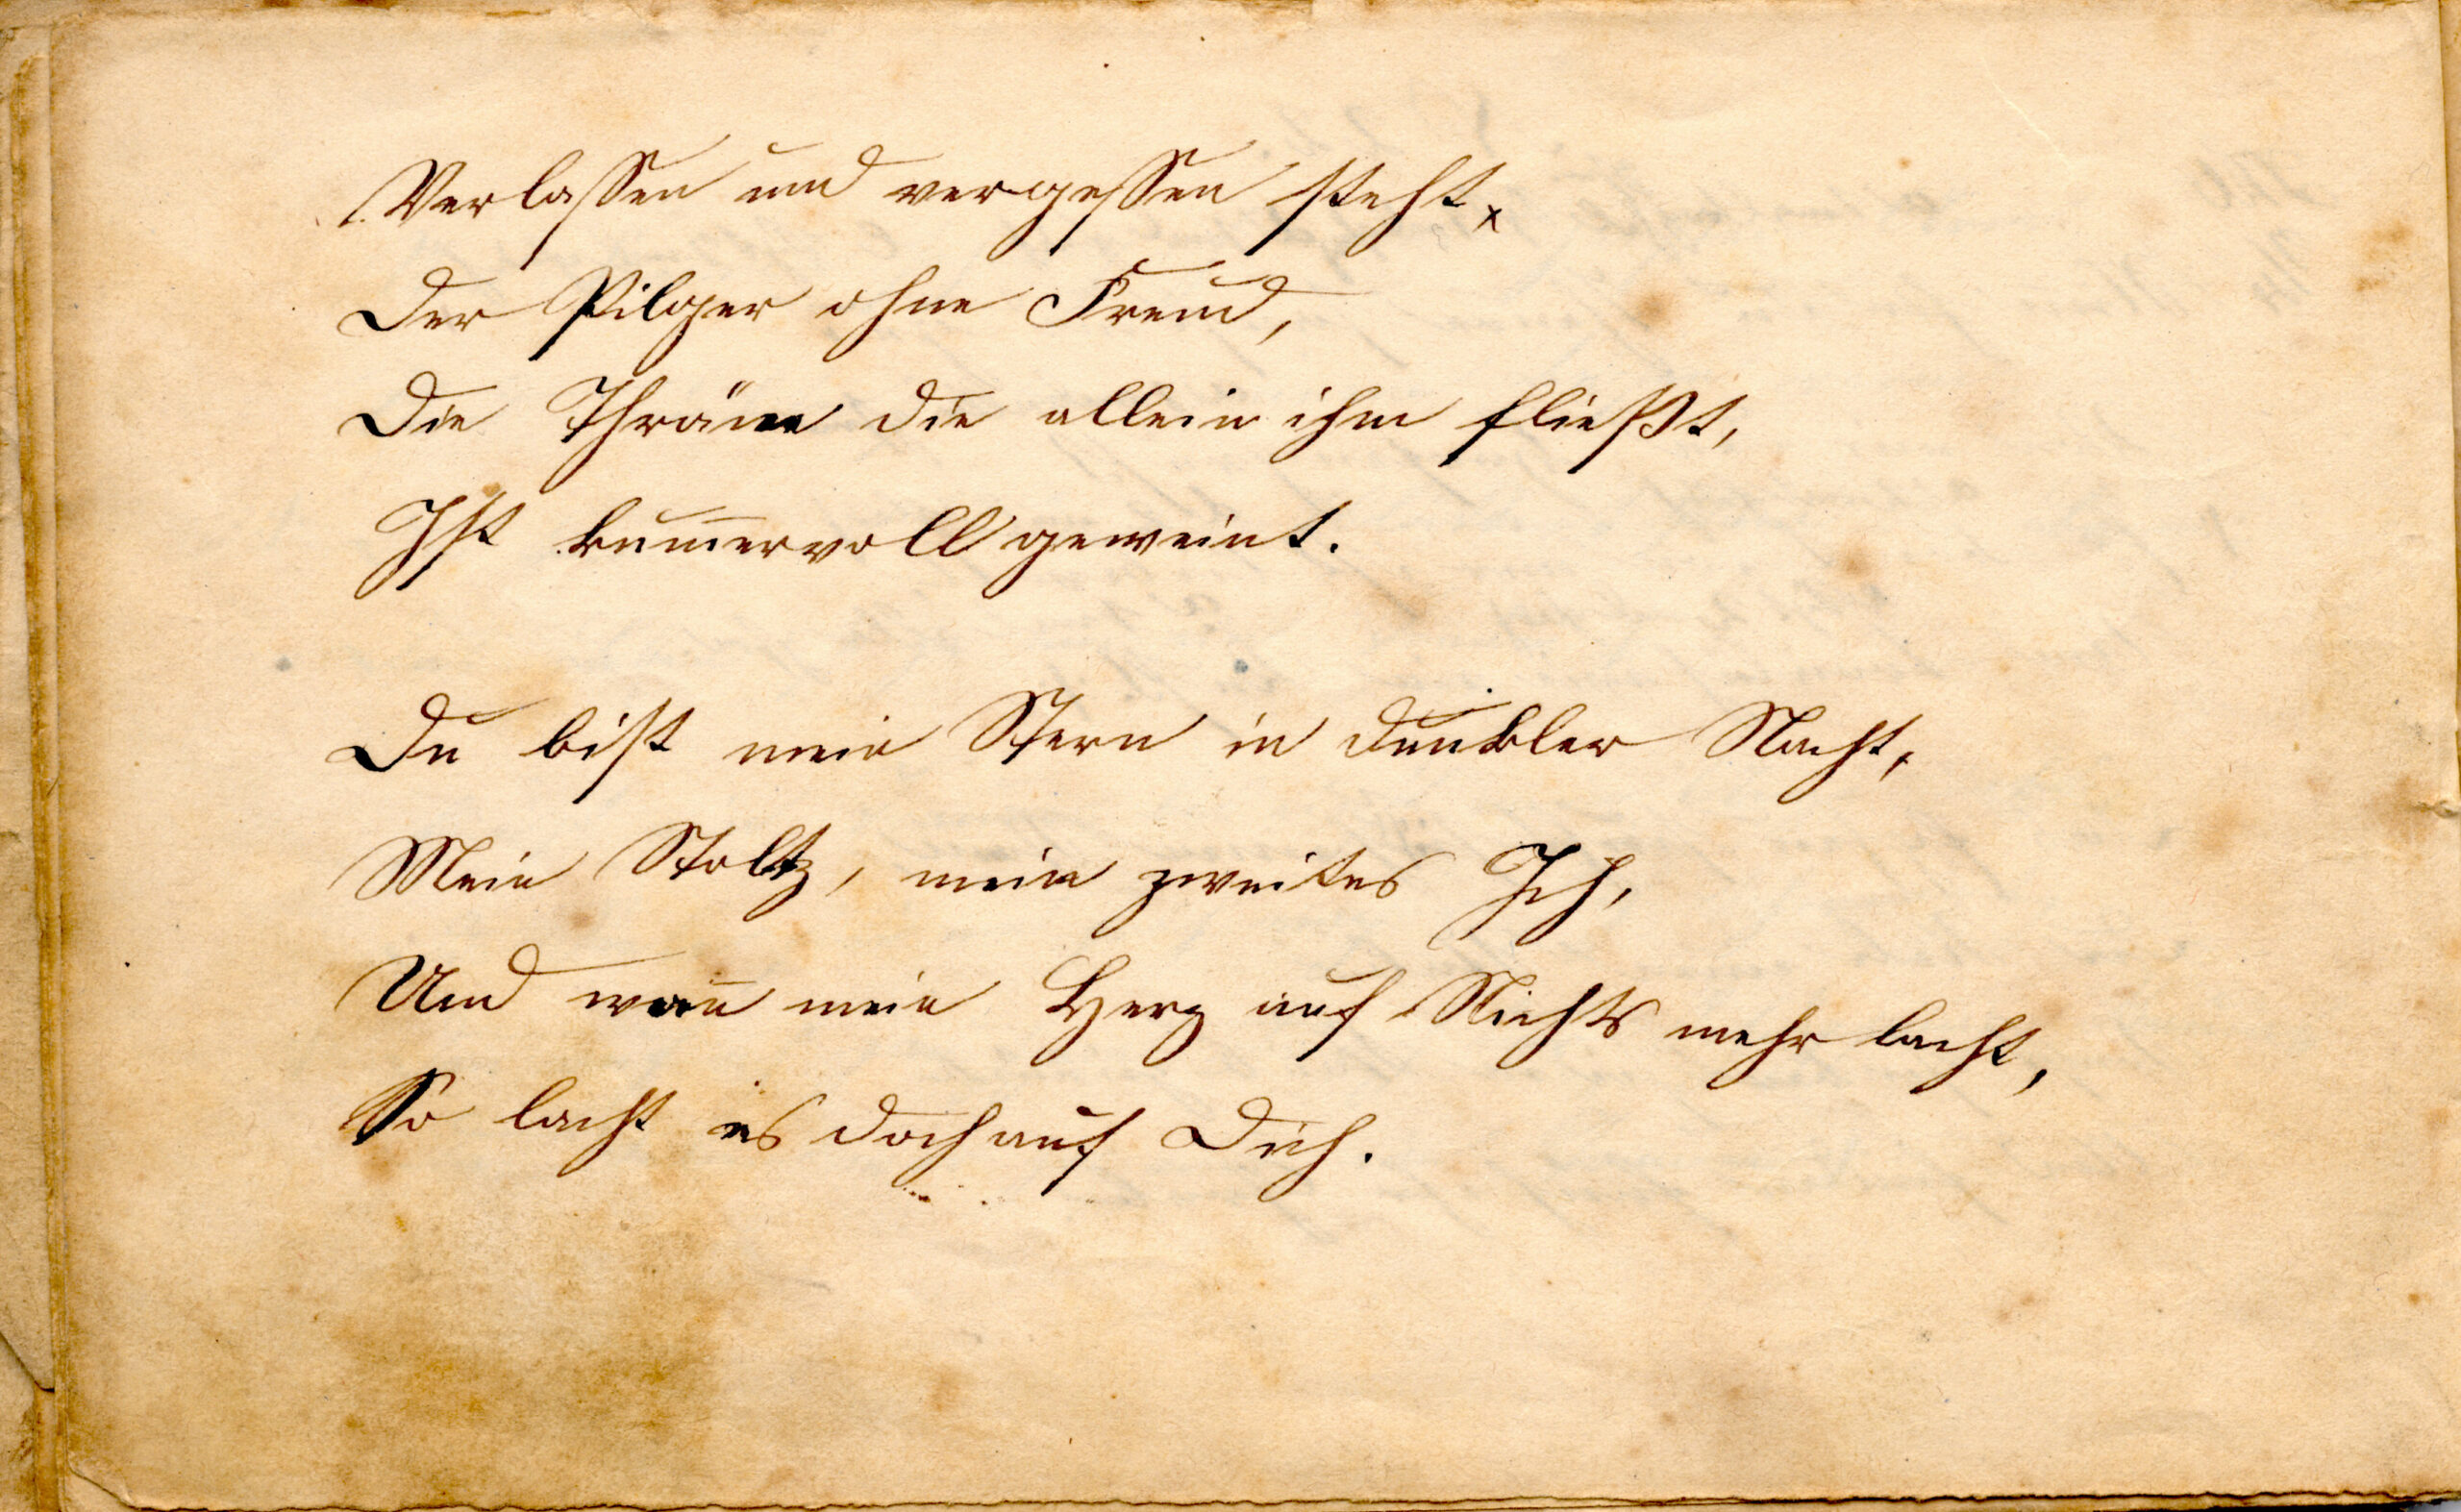 Verlassen und vergessen steht,
Der Pilger ohne Freund,
Die Thräne die allein ihm fließt,
Ist kum̅ervoll geweint.
Du bist mein Stern in dunkler Nacht,
Mein Stoltz, mein zweites Ich,
Und wan̅ mein Herz auf Nichts mehr lacht,
So lacht es doch auf Dich.